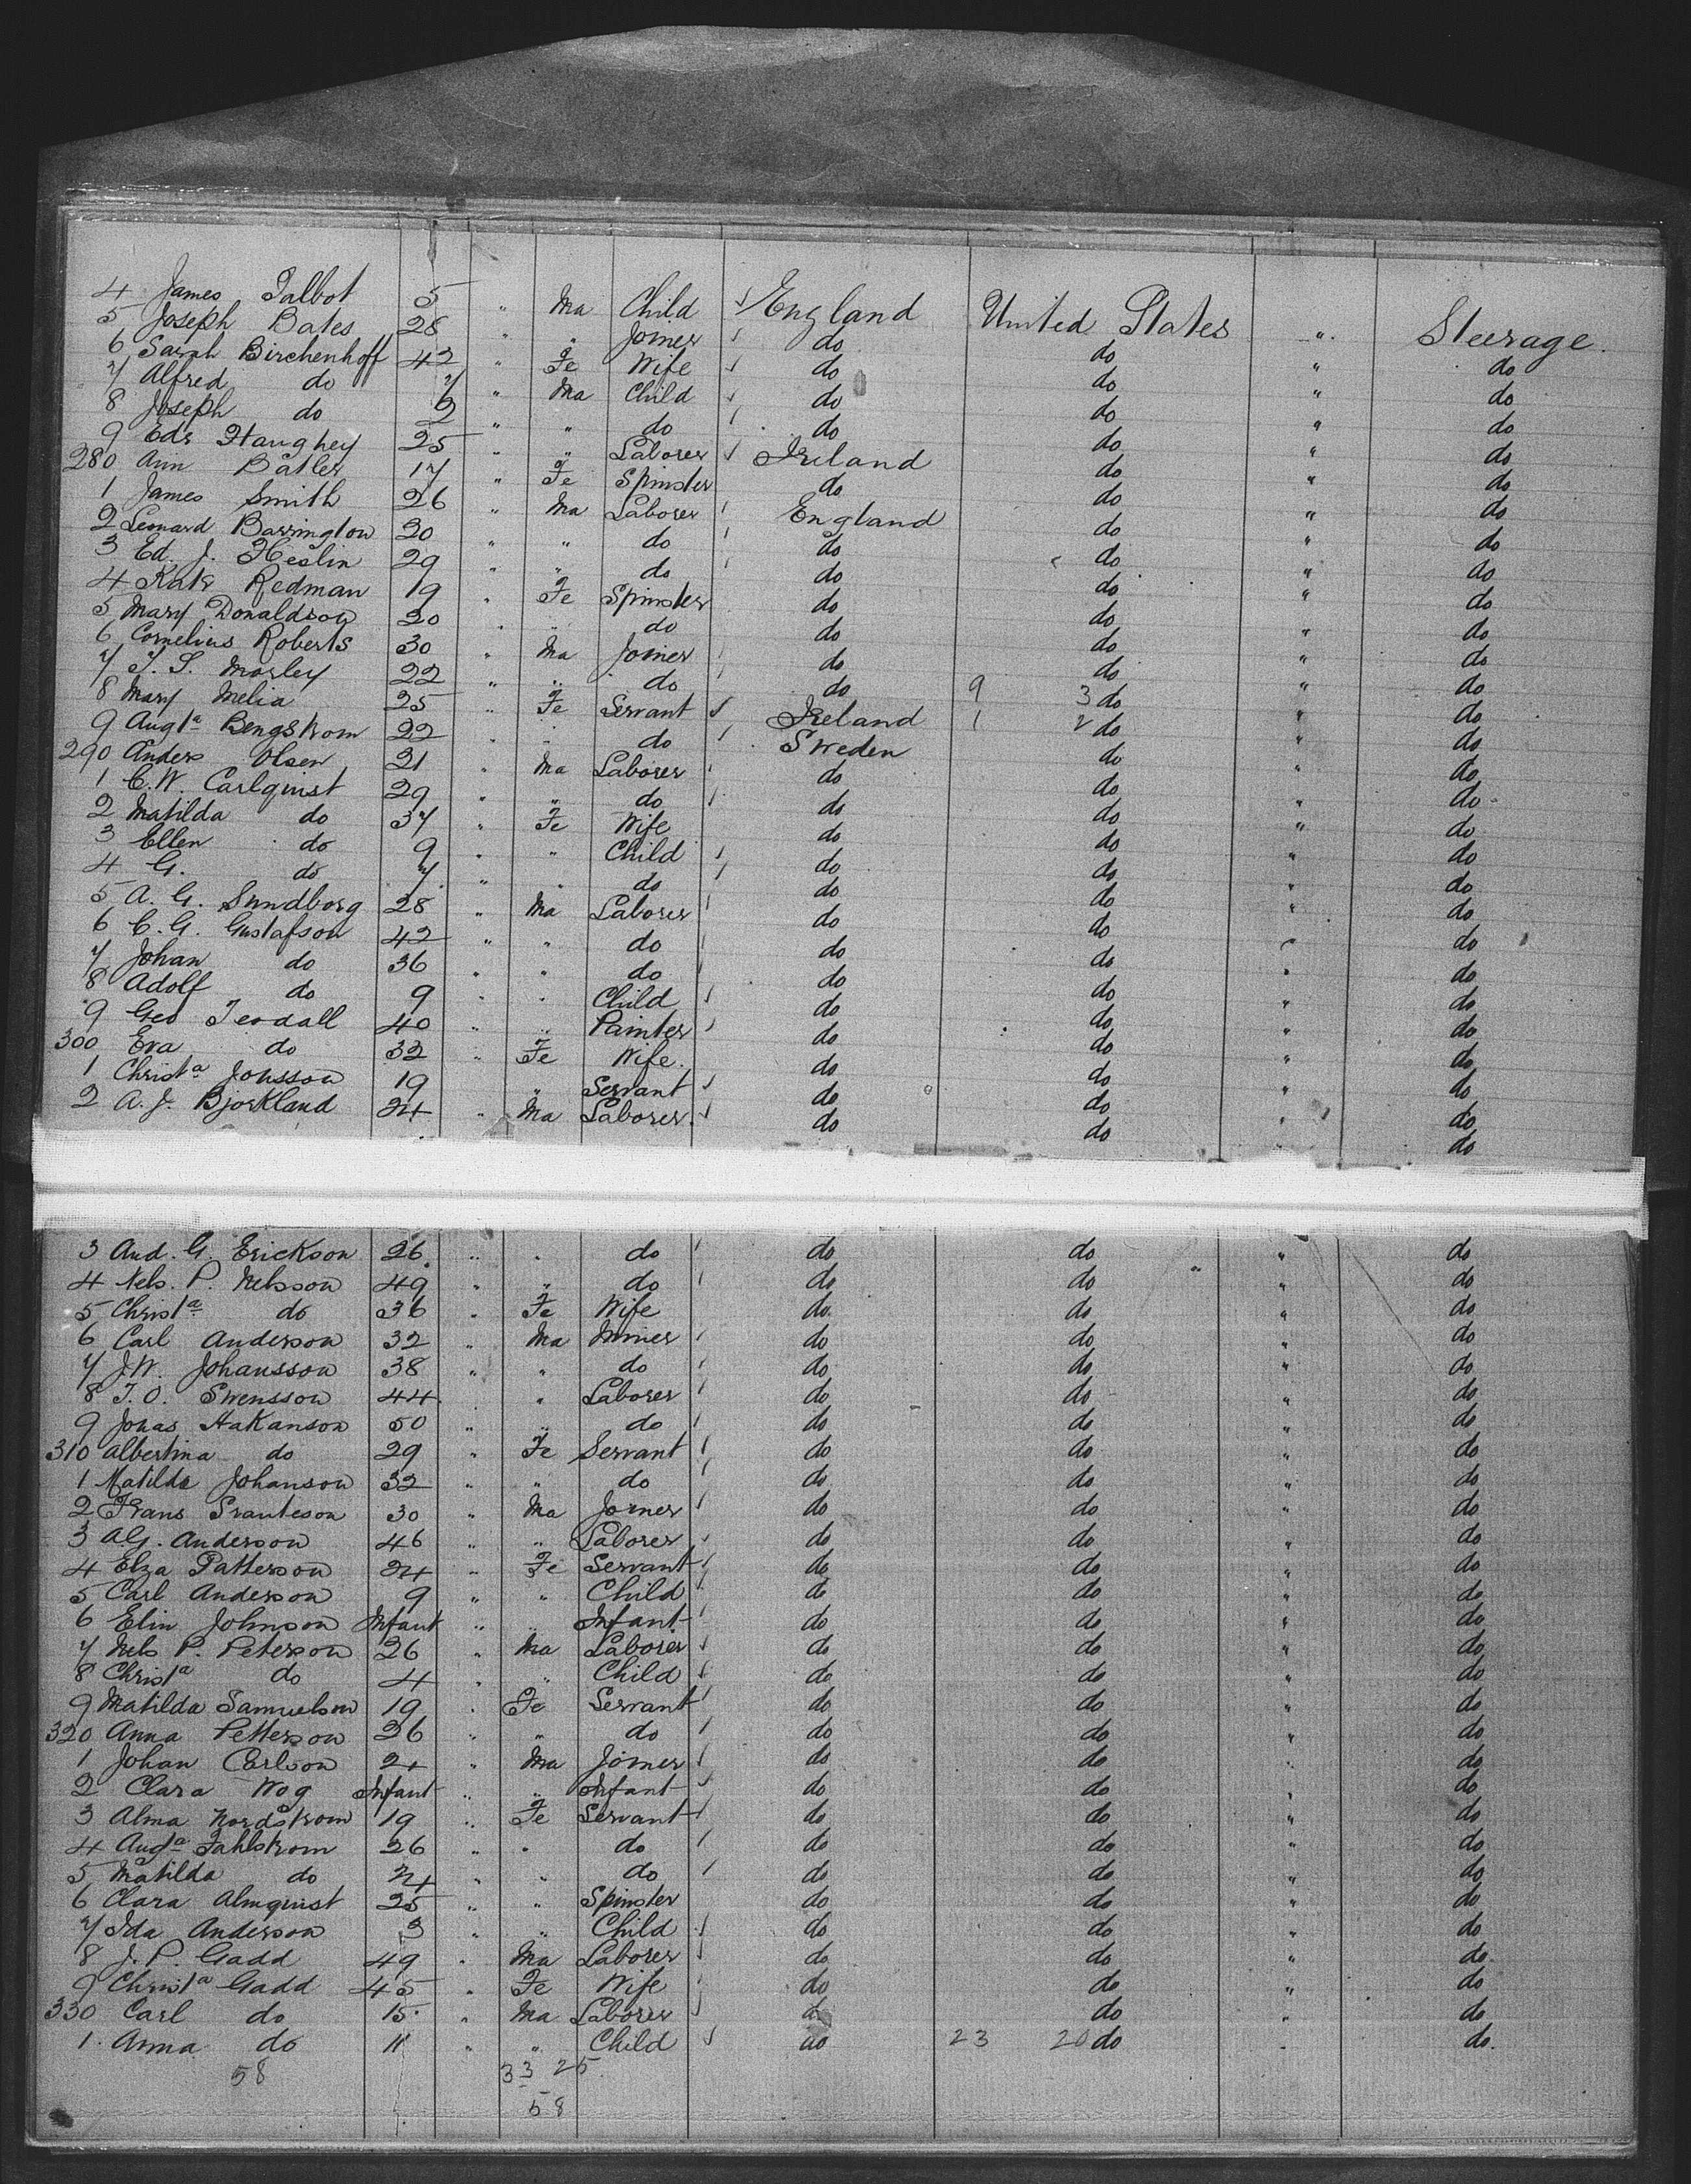 4 James Talbot 5 " Ma Child England United States " Steerage.
5 Joseph Bates 28 " " Joiner do do " do
6 Sarah Birchenhoff 42 " Fe Wife do do " do
7 Alfred do 7 " Ma Child do do " do
8 Joseph do 2 " " do do do " do
9 Edr Haughey 25 " " Laborer Ireland do " do
280 Ann Batler 17 " Fe Spinster do do " do
1 James Smith 26 " Ma Laborer England do " do
2 Leonard Barrington 20 " " do do do " do
3 Ed. J. Heslin 29 " " do do do " do
4 Kate Redman 19 " Fe Spinster do do " do
5 Mary Donaldson 20 " " do do do " do
6 Cornelius Roberts 30 " Ma Joiner do do " do
7 T. S. Morley 22 " " do do do " do
8 Mary Melia 25 " Fe Servant Ireland 9 3 do " do
9 Augta Bengstrom 22 " " do Sweden 1 2 do " do
290 Anders Olsen 21 " Ma Laborer do do " do
1 C. W. Carlquist 29 " " do do do " do
2 Matilda do 37 " Fe Wife do do " do
3 Ellen do 9 " " Child do do " do
4 G. do 7 " " do do do " do
5 A. G. Sundborg 28 " Ma Laborer do do " do
6 C. G. Gustafson 42 " " do do do " do
7 Johan do 36 " " do do do " do
8 Adolf do 9 " " Child do do " do
9 Geo Teodall 40 " " Painter do do " do
300 Eva do 32 " Fe Wife. do do " do
1 Christa Jonsson 19 " Servant do do " do
2 A. J. Bjorkland 24 " Ma Laborer. do do " do
do
3 And. G. Erickson 26 " " do do do " do
4 Nels. P. Nelsson 49 " " do do do " do
5 Christa do 36 " Fe Wife do do " do
6 Carl Anderson 32 " Ma Miner do do " do
7 J. W. Johansson 38 " " do do do " do
8 J. O. Swensson 44 " Laborer do do " do
9 Jonas Hakanson 50 " " do do do " do
310 Albertina do 29 " Fe Servant do do " do
1 Matilda Johanson 32 " " do do do " do
2 Frans Svanteson 30 " Ma Joiner do do " do
3 A. G. Anderson 46 " " Laborer do do " do
4 Elza Patterson 24 " Fe Servant do do " do
5 Carl Anderson 9 " " Child do do " do
6 Elin Johnson Infant " " Infant do do " do
7 Nels P. Peterson 26 " Ma Laborer do do " do
8 Christa do 4 " " Child do do " do
9 Matilda Samuelson 19 " Fe Servant do do " do
320 Anna Petterson 26 " " do do do " do
1 Johan Carlson 24 " Ma Joiner do do " do
2 Clara Wog Infant " " Infant do do " do
3 Alma Nordstrom 19 " Fe Servant do do " do
4 Augta Fahlstrom 26 " " do do do " do
5 Matilda do 24 " " do do do " do
6 Clara Almquist 25 " " Spinster do do " do
7 Ida Anderson 3 " " Child do do " do
8 J. P. Gadd 49 " Ma Laborer do do " do
9 Christa Gadd 45 " Fe Wife do do " do
330 Carl do 15 " Ma Laborer do do " do
1 Anna do 11 " " Child do 23 20 do " do.
58 33 25
58